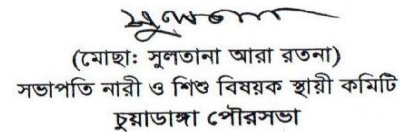 সুলতানা
(মোছা: সুলতানা আরা রতনা)
সভাপতি নারী ও শিশু বিষয়ক স্থায়ী কমিটি
চুয়াডাঙ্গা পৌরসভা